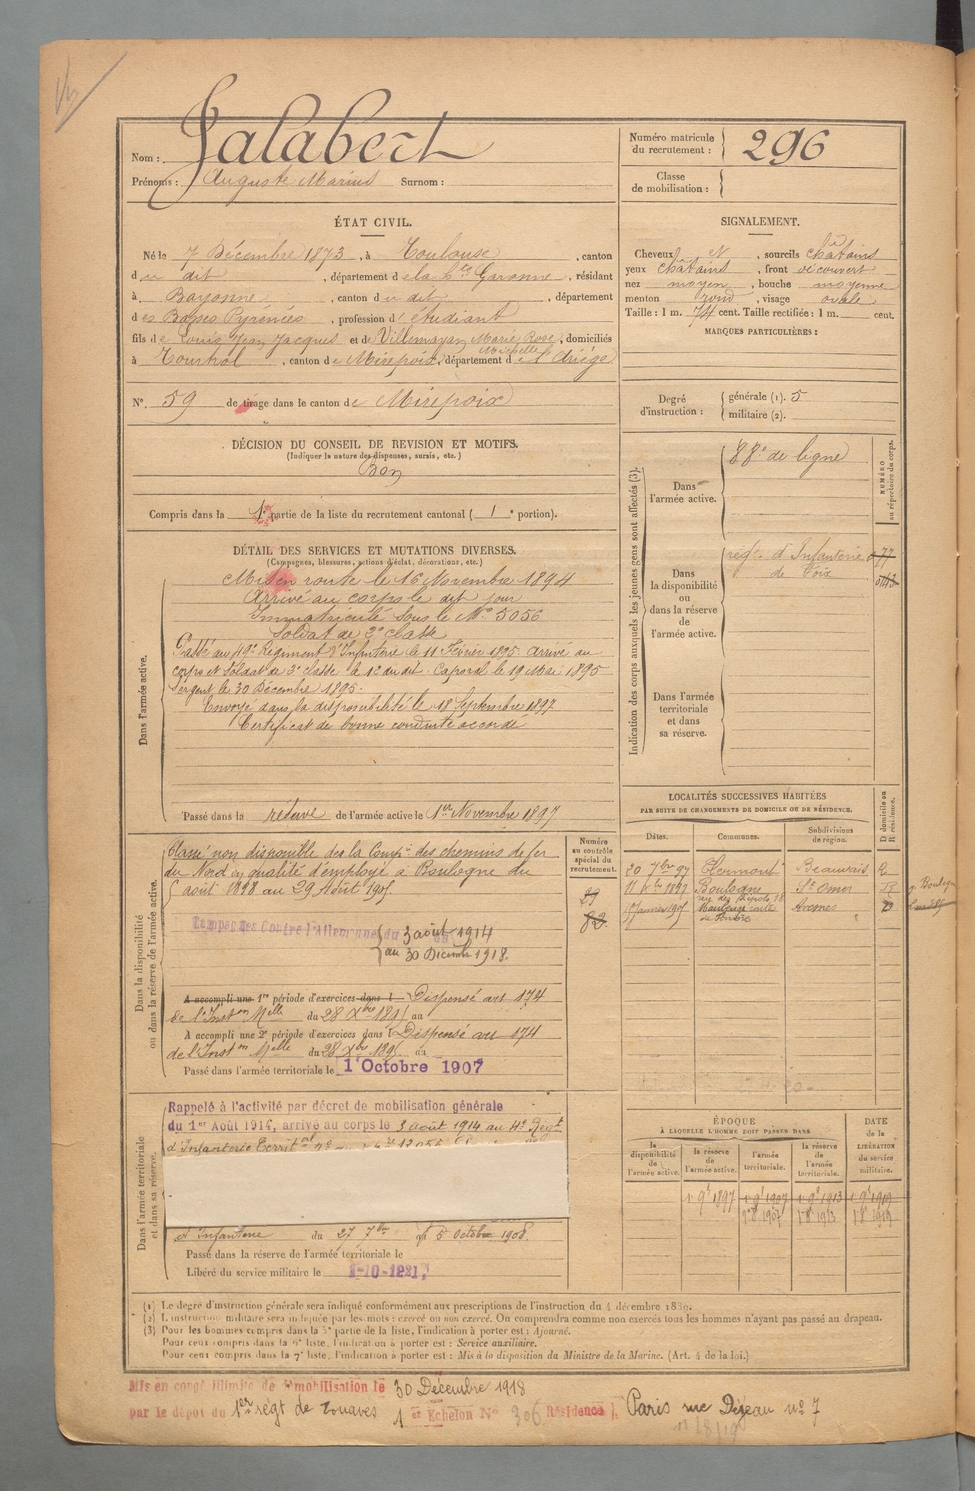 Nom : Jalabert
Prénoms : Auguste Marius Surnom :
Numéro matricule du recrutement : 296
Classe de mobilisation :
ÉTAT CIVIL.
Né le 7 Décembre 1873, à Toulouse, canton
du dit, département de la Hte Garonne, résidant
à Bayonne, canton du dit, département
des Basses Pyrénées, profession d'étudiant
fils de Louis Jean Jacques et de Villemayan Marie Rose, domiciliés
à Tourtrol, canton de Mirepoix, département de l'Ariége
N° 59 de tirage dans le canton de Mirepoix
SIGNALEMENT.
Cheveux N, sourcils châtains
yeux châtains, front découvert
nez moyen, bouche moyenne
menton rond, visage ovale
Taille : 1 m. 74 cent. Taille rectifiée : 1 m. cent.
MARQUES PARTICULIÈRES :
Degré d'instruction : générale (1). 5
militaire (2).
DÉCISION DU CONSEIL DE REVISION ET MOTIFS.
(Indiquer la nature des dispenses, sursis, etc.)
Bon
Compris dans la 1e partie de la liste du recrutement cantonal ( 1 e portion).
DÉTAIL DES SERVICES ET MUTATIONS DIVERSES.
(Campagnes, blessures, actions d'éclat, décorations, etc.)
Dans l'armée active.
Mis en route le 16 Novembre 1894
Arrivé au corps le dit jour
Immatriculé sous le N° 5056
Soldat de 2e classe
Passé au 49e Régiment d'Infanterie le 11 Février 1895. Arrivé au
corps et Soldat de 2e classe le 12 du dit. Caporal le 19 Mai 1895
Sergent le 30 Décembre 1895.
Envoyé dans la disponibilité le 18 Septembre 1897
Certificat de bonne conduite accordé
Passé dans la réserve de l'armée active le 1er Novembre 1897
Indication des corps auxquels les jeunes gens sont affectés (3).
NUMÉRO au répertoire du corps.
Dans l'armée active.
88e de ligne
Dans la disponibilité ou dans la réserve de l'armée active.
régt. d'Infanterie
de Foix
Dans l'armée territoriale et dans sa réserve.
LOCALITÉS SUCCESSIVES HABITÉES
PAR SUITE DE CHANGEMENTS DE DOMICILE OU DE RÉSIDENCE.
Dates. Communes. Subdivisions de région. D domicile ou R résidence.
20 7bre 97 Clermont Beauvais R
Boulogne St Omer R
Avesnes D
Dans la disponibilité ou dans la réserve de l'armée active.
Numéro au contrôle spécial du recrutement.
Classé non disponible de la Compie des chemins de fer
du Nord en qualité d'employé à Boulogne du
5 août 1898 au 29 Août 1905
Campagnes Contre l'Allemagne du 3 août 1914
au 30 Décemb 1918.
A accompli une 1re période d'exercices dans l Dispensé art 174
de l'Inston Melle du 28 Xbre 1895 au
A accompli une 2e période d'exercices dans l Dispensé art 174
de l'Inston Melle du 28 Xbre 1895 au
Passé dans l'armée territoriale le 1er Octobre 1907
Dans l'armée territoriale et dans sa réserve.
Rappelé à l'activité par décret de mobilisation générale
du 1er Août 1914, arrivé au corps le 3 août 1914 au 4e Régt
d'Infanterie Territ
d'Infanterie du 27 7bre au 5 Octobre 1908.
Passé dans la réserve de l'armée territoriale le
Libéré du service militaire le 1-10-1921
ÉPOQUE
À LAQUELLE L'HOMME DOIT PASSER DANS
la disponibilité de l'armée active. la réserve de l'armée active. l'armée territoriale. la réserve de l'armée territoriale.
DATE de la LIBÉRATION du service militaire.
1r 9e 1897 1r 9e 1907 1r 9e 1913 1r 9e 1919
(1) Le degré d'instruction générale sera indiqué conformément aux prescriptions de l'instruction du 4 décembre 1889.
(2) L'instruction militaire sera indiquée par les mots : exercé ou non exercé. On comprendra comme non exercés tous les hommes n'ayant pas passé au drapeau.
(3) Pour les hommes compris dans la 5e partie de la liste, l'indication à porter est : Ajourné.
Pour ceux compris dans la 6e liste, l'indication à porter est : Service auxiliaire.
Pour ceux compris dans la 7e liste, l'indication à porter est : Mis à la disposition du Ministre de la Marine. (Art. 4 de la loi.)
Mis en congé illimité de démobilisation le 30 Décembre 1918
par le dépôt du 1er régt de Zouaves 1 er Echelon N° 306 Résidence ), Paris rue Dizeau n° 7